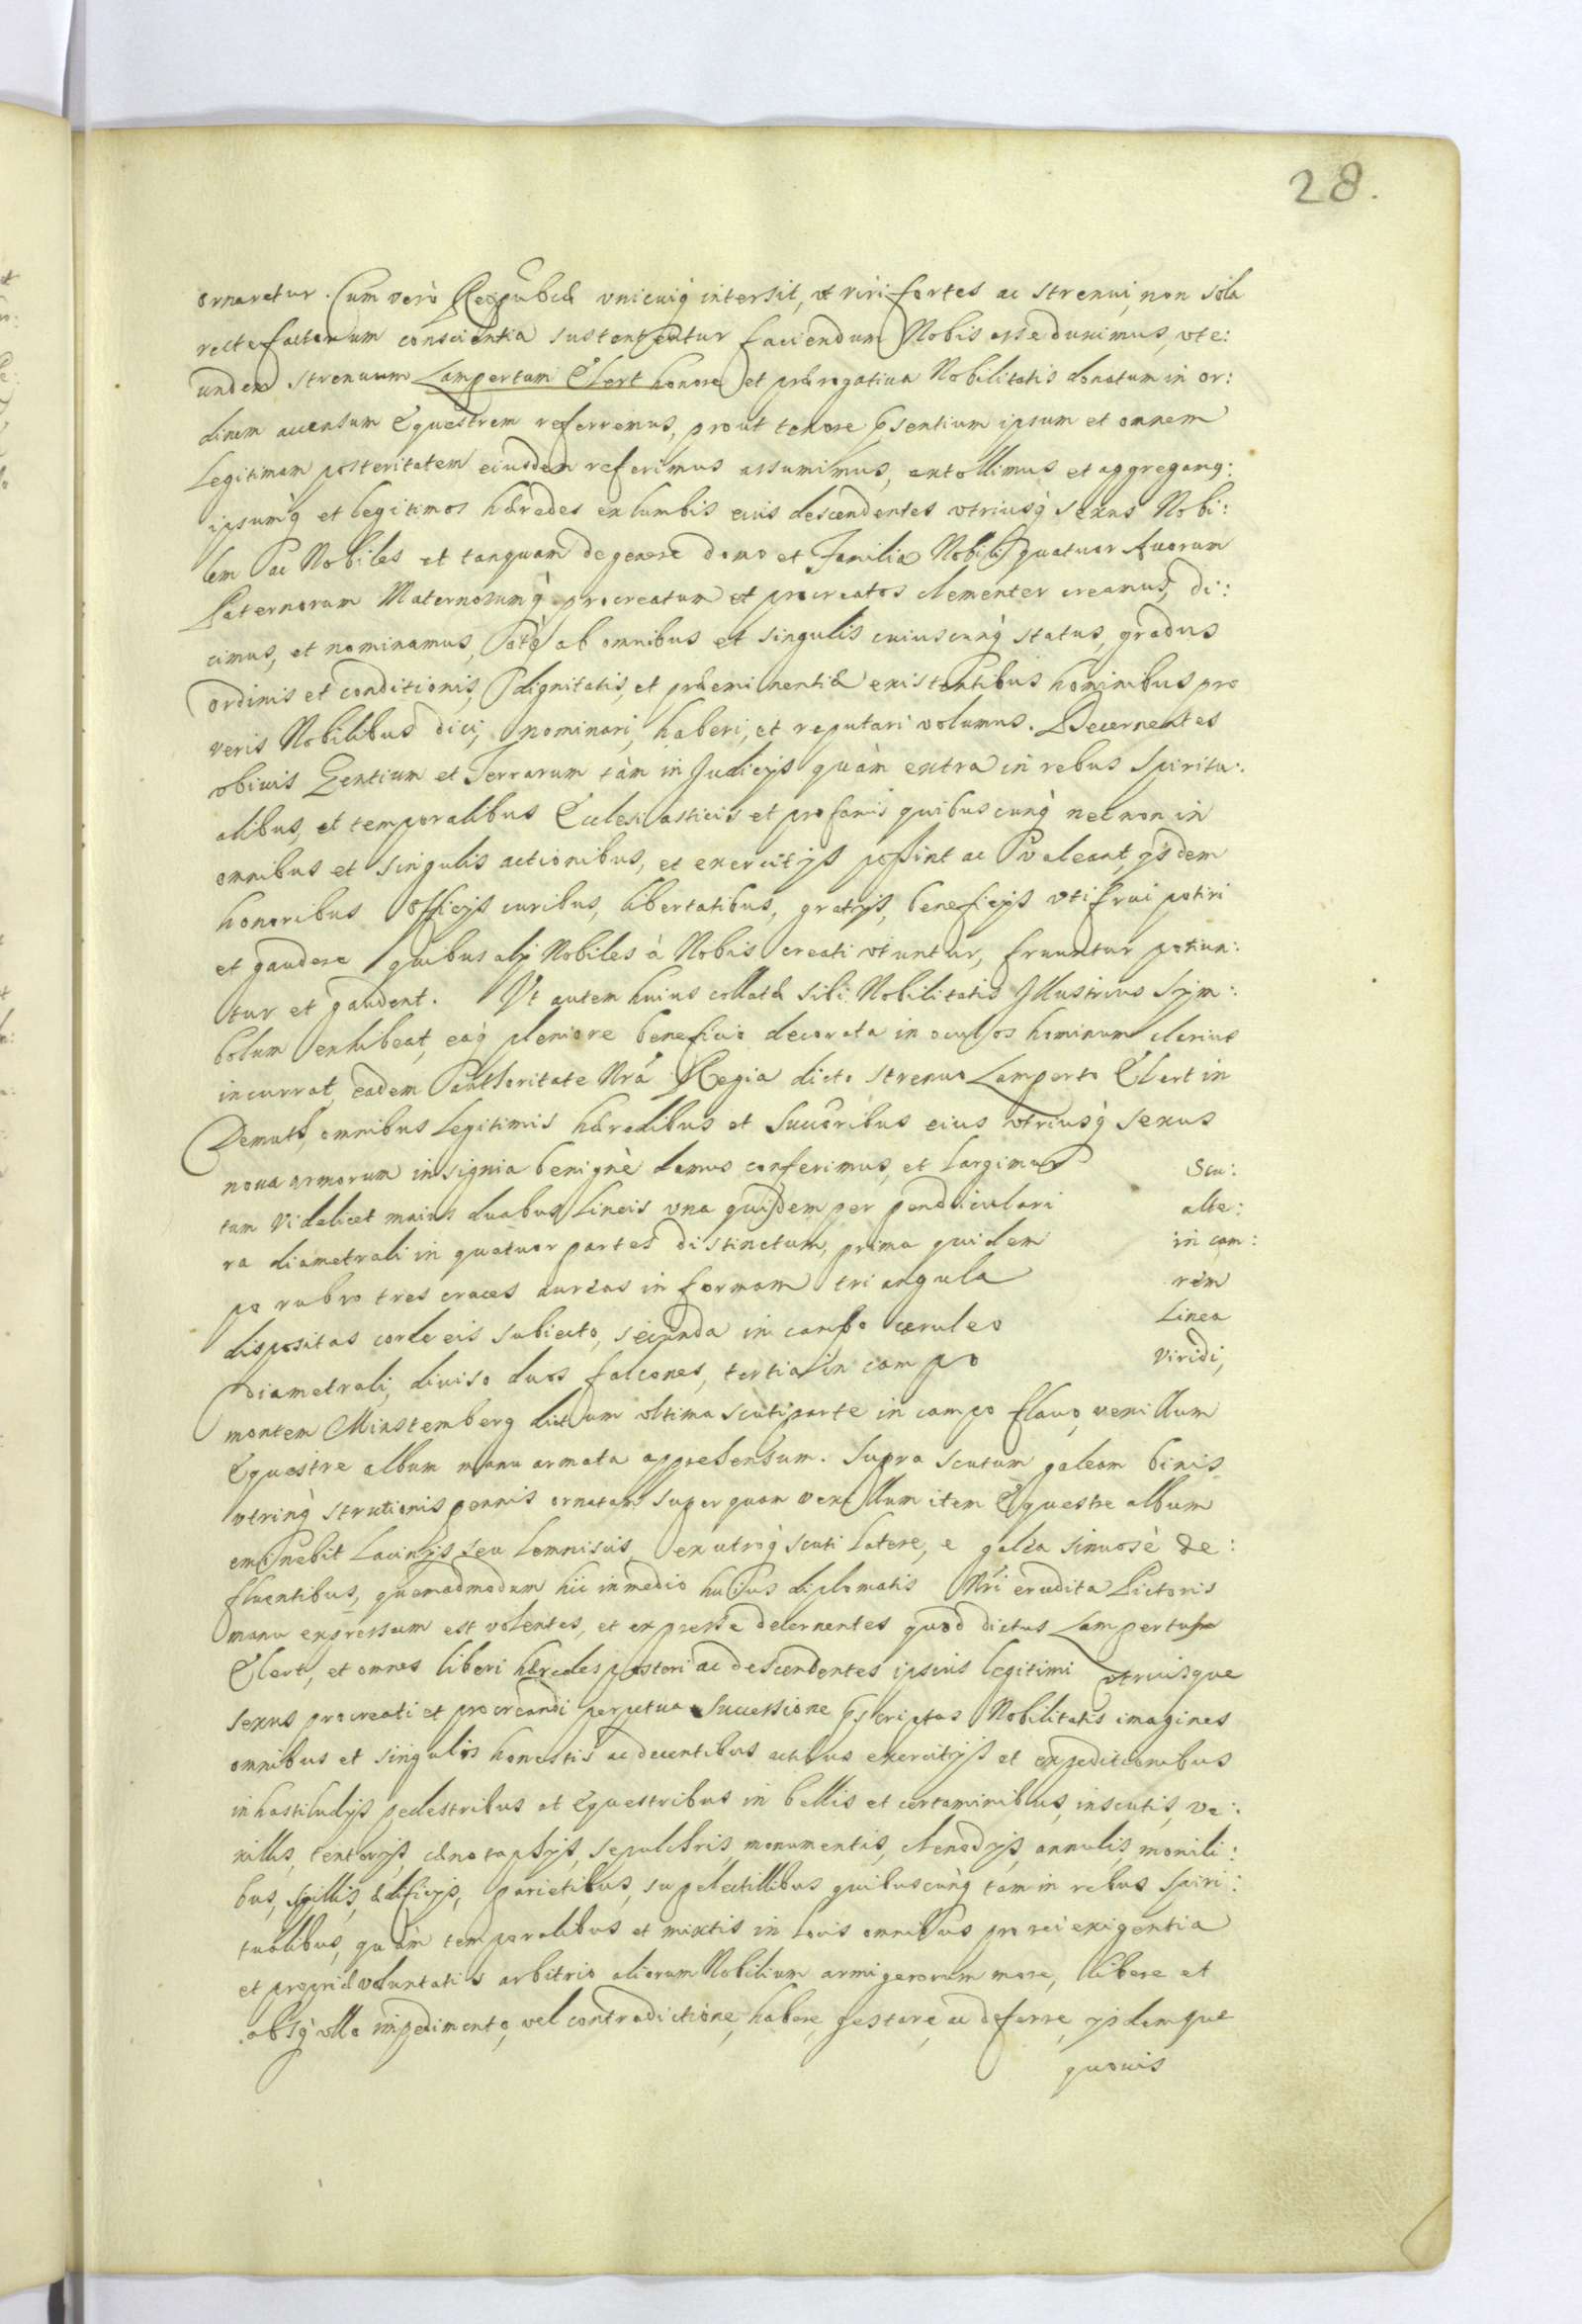 28.
ornaretur. Cum verò Reipublicæ vnicuiq̀ intersit, vt viri fortes ac strenui, non sola
recte factorum conscientia sustententur faciendum Nobis esse duximus, vt e:
undem strenuum Lampertum Elert honore et prærogatiua Nobilitatis donatum in or:
dinem accensum Equestrem referremus, prout tenore psentium ipsum et omnem
Legitimam posteritatem eiusdem referimus assumimus, extollimus et aggregamg:
ipsumq̀ et legitimos hæredes ex lumbis eius descendentes vtriusq̀ sexus Nobi:
lem ac Nobiles et tanquam de genere domo et Familia Nobili quatuor Auorum
Paternorum Maternorumq̀ procreatum et procreatos clementer creamus, di:
cimus, et nominamus, atq̀ ab omnibus et singulis cuiuscunq̀ status, gradus
ordinis et conditionis, dignitatis, et præeminentiæ existentibus hominibus pro
veris Nobilibus dici, nominari, haberi, et reputari volumus. Decernentes
vbiuis Gentium et Terrarum tàm in Judicijs quàm extra in rebus Spiritu:
alibus, et temporalibus Ecclesiasticis et profanis quibuscunq̀ nec non in
omnibus et singulis actionibus, et exercitijs possint ac valeant, ijsdem
honoribus Officijs iuribus, libertatibus, gratijs, beneficijs vti frui potiri
et gaudere quibus alij Nobiles à Nobis creati vtuntur, fruuntur potiun:
tur et gaudent. Vt autem huius collatæ sibi Nobilitatis Illustrius Sym:
bolum exhibeat, eaq̀ pleniore beneficio decorata in oculos hominum clarius
incurrat, eadem authoritate Nrá Regia dicto strenuo Lamperto Elert in
Demuth, omnibus Legitimis hæredibus et Succoribus eius vtriusq̀ sexus
noua armorum insignia benignè damus conferimus, et largimur Scu:
tum Videlicet maius duabus Lineis vna quidem perpendiculari alte:
ra diametrali in quatuor partes distinctum, prima quidem in cam:
po rubro tres cruces aureas in formam triangula rem
dispositas corde eis subiecto, secunda in campo cæruleo Linea
diametrali, diuiso duos falcones, tertia in campo Viridi,
montem Minstemberg dictum vltima scuti parte in campo flauo, vexillum
Equestre album manu armata apprehensum. Supra scutum galeam binis
vtrinq̀ strutionis pennis ornatam super quam vexillum item Equestre album
eminebit Lacinijs seu Lemniscis ex utroq̀ scuti Latere, e galea sinuosè de:
fluentibus, quemadmodum hìc in medio huius diplomatis Nri erudita Pictoris
manu expressum est volentes, et expresse decernentes quod dictus Lampertus
Elert, et omnes liberi hæredes posteri ac descendentes ipsius legitimi vtriusque
sexus procreati et procreandi perpetua Successione pscriptas Nobilitatis imagines
omnibus et singulis honestis ac decentibus actibus exercitijs et expeditionibus
in hastiludijs pedestribus et Equestribus in bellis et certaminibus, in scutis, ve:
xillis, tentorijs, cænotaphijs, sepulchris, monumentis, clenodijs, annulis, monili:
bus, sigillis, ædificijs, parietibus, supelectillibus quibuscunq̀ tam in rebus spiri:
tualibus, quàm temporalibus et mixtis in locis omnibus pro rei exigentia
et propriæ voluntatis arbitrio aliorum Nobilium armigerorum more, libere et
absq̀ vllo impedimento, vel contradictione, habere, gestare, ac deferre, ijsdemque
quouis